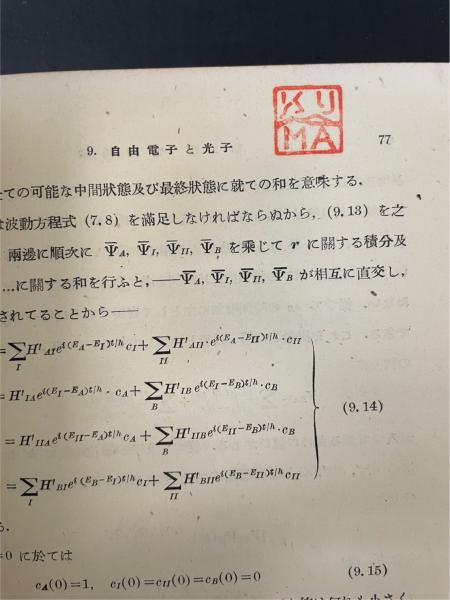 KU
MA
9. 自由電子と光子
77
ての可能な中間狀態及び最終狀態に就ての和を意味する。
波動方程式 (7.8) を滿足しなければならぬから, (9.13) を之
兩邊に順次に Ψ̅_A, Ψ̅_I, Ψ̅_II, Ψ̅_B を乘じて r に關する積分及
…に關する和を行ふと,——Ψ̅_A, Ψ̅_I, Ψ̅_II, Ψ̅_B が相互に直交し,
されてることから——
=∑_I H'_{AI}e^{i(E_A−E_I)t/h}c_I+∑_{II} H'_{AII}·e^{i(E_A−E_{II})t/h}·c_{II}
=H'_{IA}e^{i(E_I−E_A)t/h}·c_A+∑_B H'_{IB}e^{i(E_I−E_B)t/h}·c_B
=H'_{IIA}e^{i(E_{II}−E_A)t/h}c_A+∑_B H'_{IIB}e^{i(E_{II}−E_B)t/h}·c_B
(9.14)
=∑_I H'_{BI}e^{i(E_B−E_I)t/h}c_I+∑_{II} H'_{BII}e^{i(E_B−E_{II})t/h}c_{II}
る.
=0 に於ては
c_A(0)=1, c_I(0)=c_{II}(0)=c_B(0)=0
(9.15)